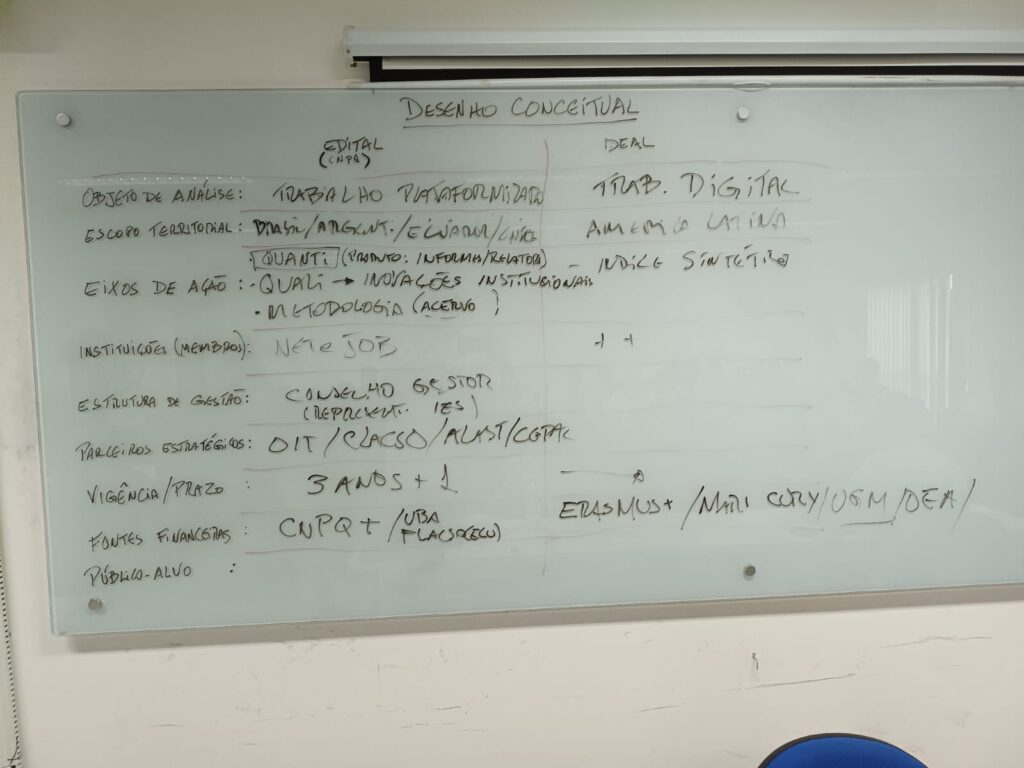 DESENHO CONCEITUAL
EDITAL (CNPQ) DEAL
OBJETO DE ANÁLISE: TRABALHO PLATAFORMIZADO TRAB. DIGITAL
ESCOPO TERRITORIAL: BRASIL/ARGENT./ECUADOR/ AMERICA LATINA
QUANTI (PRODUTO: INFORMES/RELATÓRIO) - INDICE SINTÉTICO
EIXOS DE AÇÃO: · QUALI → INOVAÇÕES INSTITUCIONAIS
· METODOLOGIA (ACERVO)
INSTITUIÇÕES (MEMBROS): ++
ESTRUTURA DE GESTÃO: CONSELHO GESTOR
(REPRESENT. IES)
PARCEIROS ESTRATÉGICOS: OIT/CLACSO/ALAST/
VIGÊNCIA/PRAZO : 3 ANOS + 1 →
FONTES FINANCEIRAS : CNPQ + /UBA ERASMUS+ /MARI CURY/ /OEA/
PÚBLICO-ALVO :